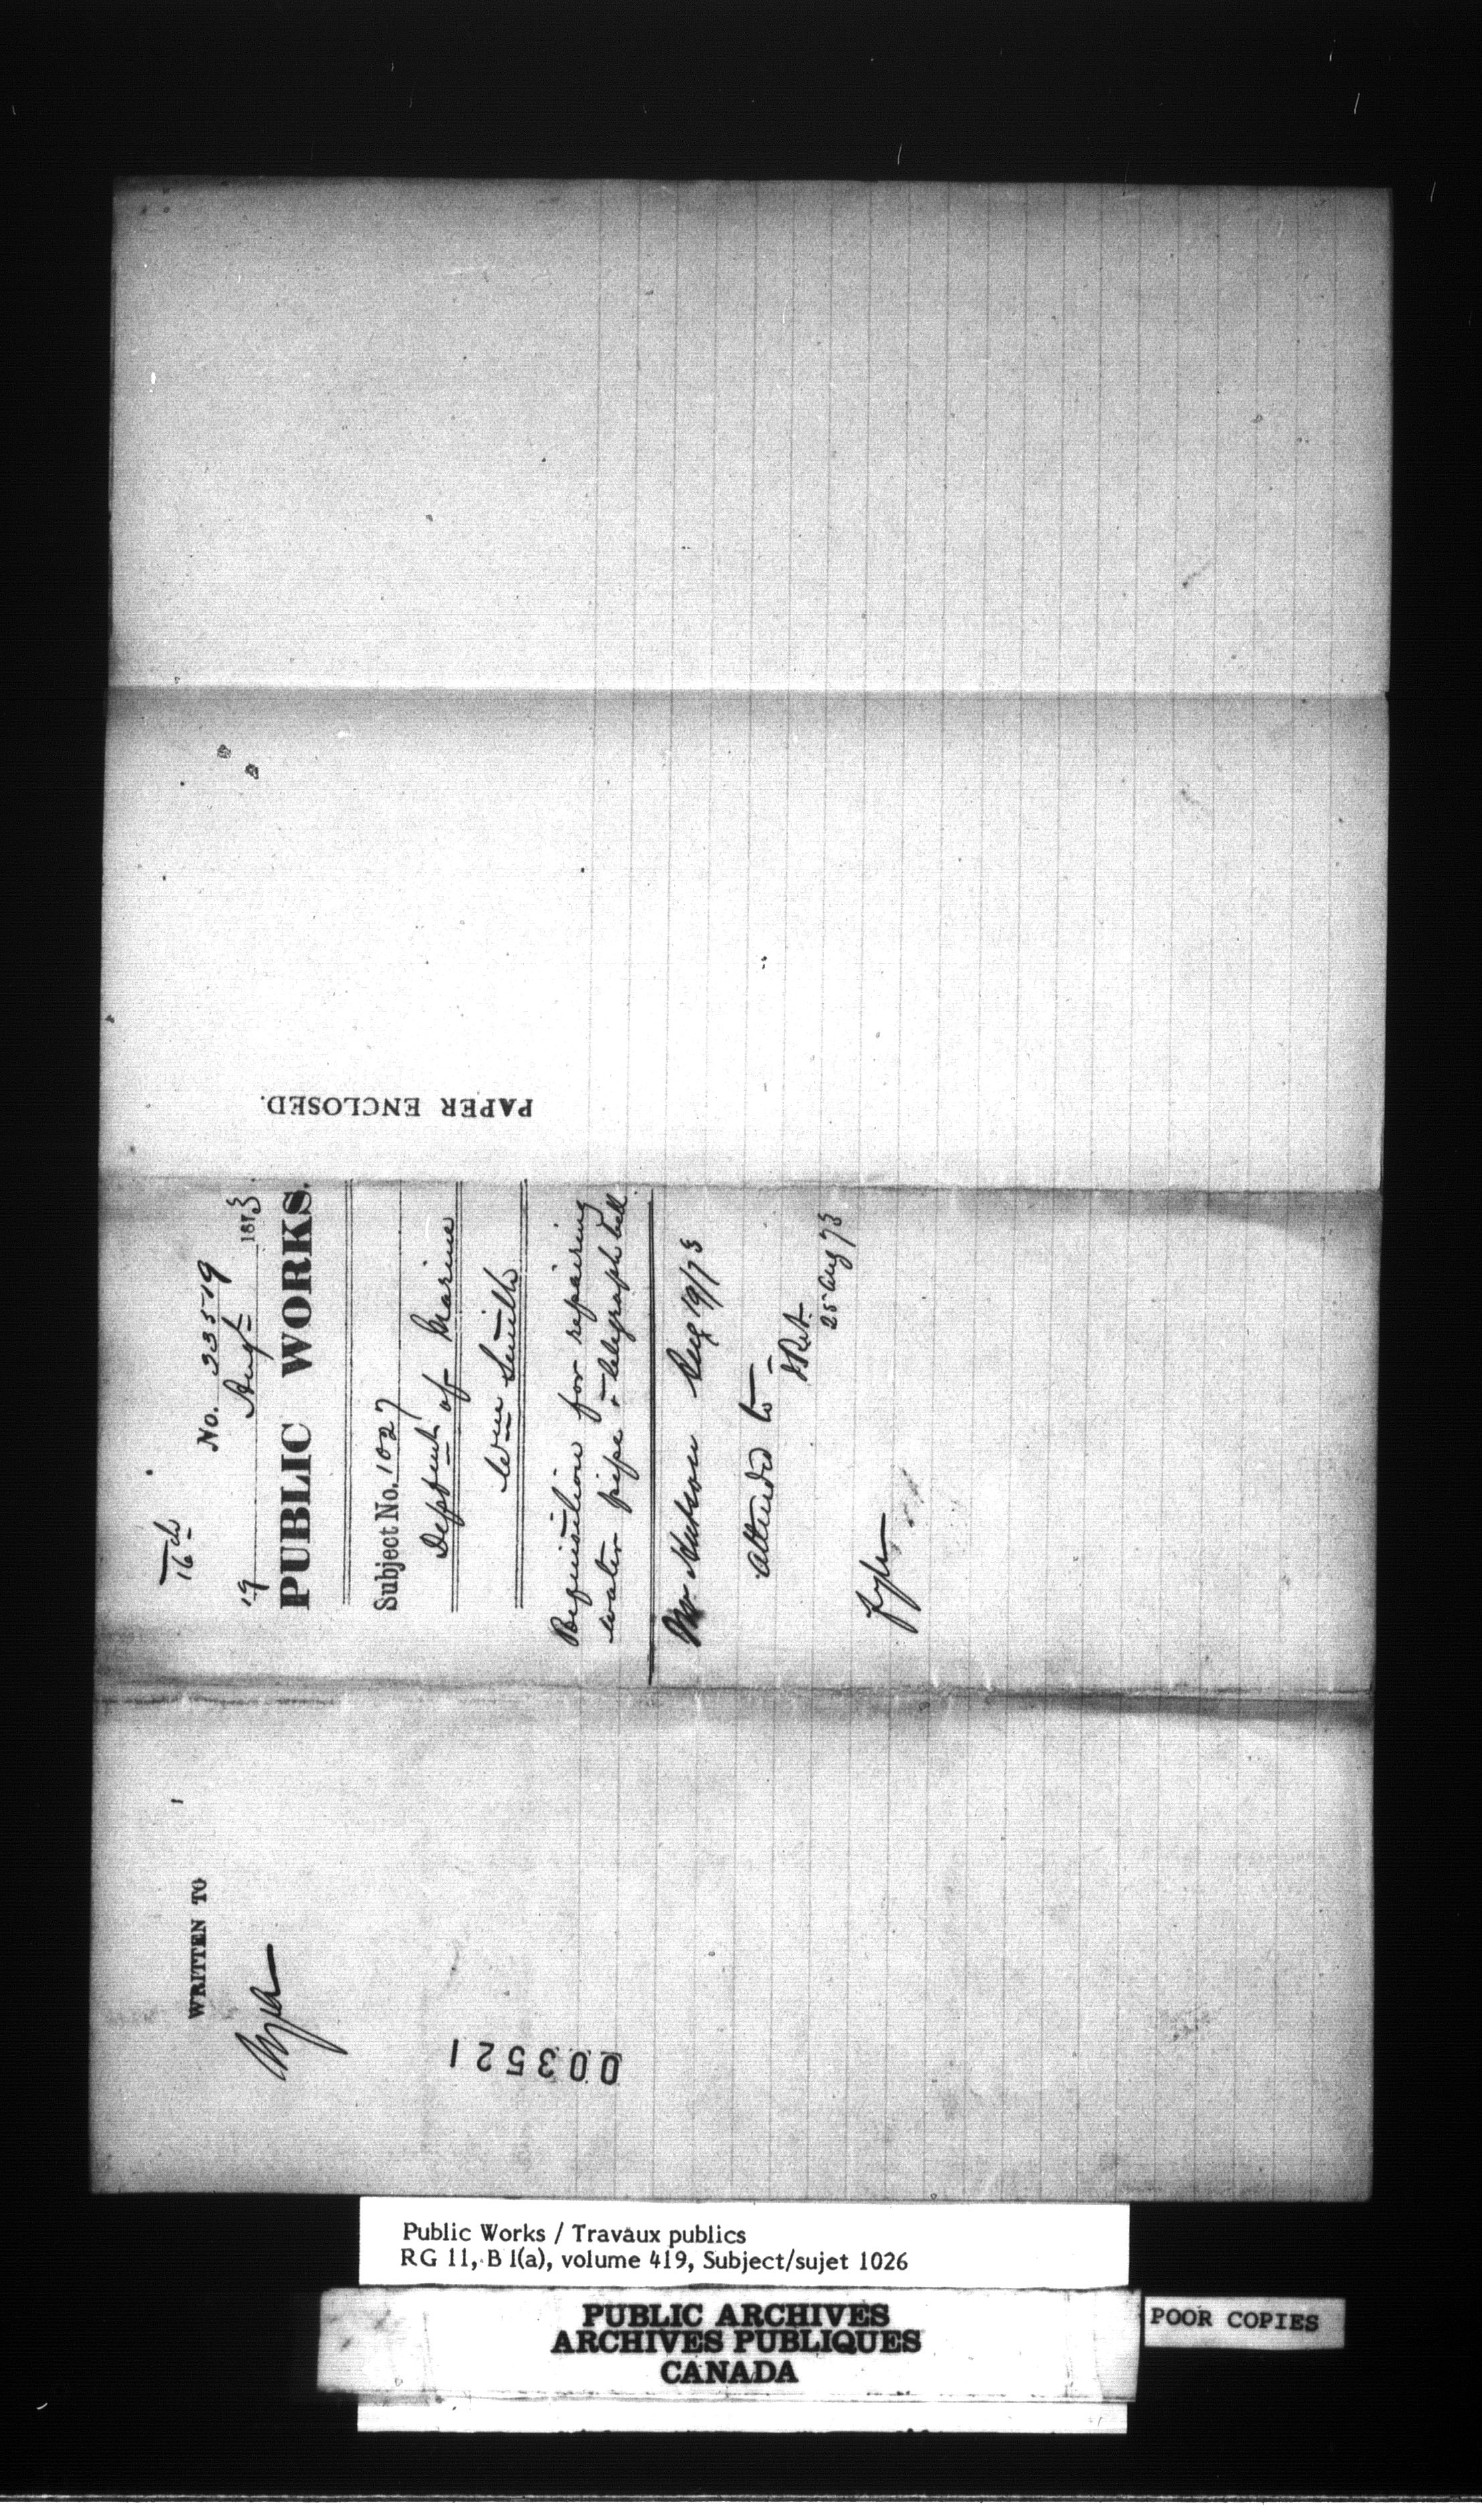 16th
No. 33519
19 Augt 1873
PUBLIC WORKS.
Subject No. 1027
Deptmt of Marine
Wm Smith
Requisition for repairing
water pipe & telegraph bell
Mr Watson Aug 19/73
Attended to
25 Aug 73
fyle
PAPER ENCLOSED.
WRITTEN TO
003521
Public Works / Travaux publics
RG 11, B 1(a), volume 419, Subject/sujet 1026
PUBLIC ARCHIVES
ARCHIVES PUBLIQUES
CANADA
POOR COPIES